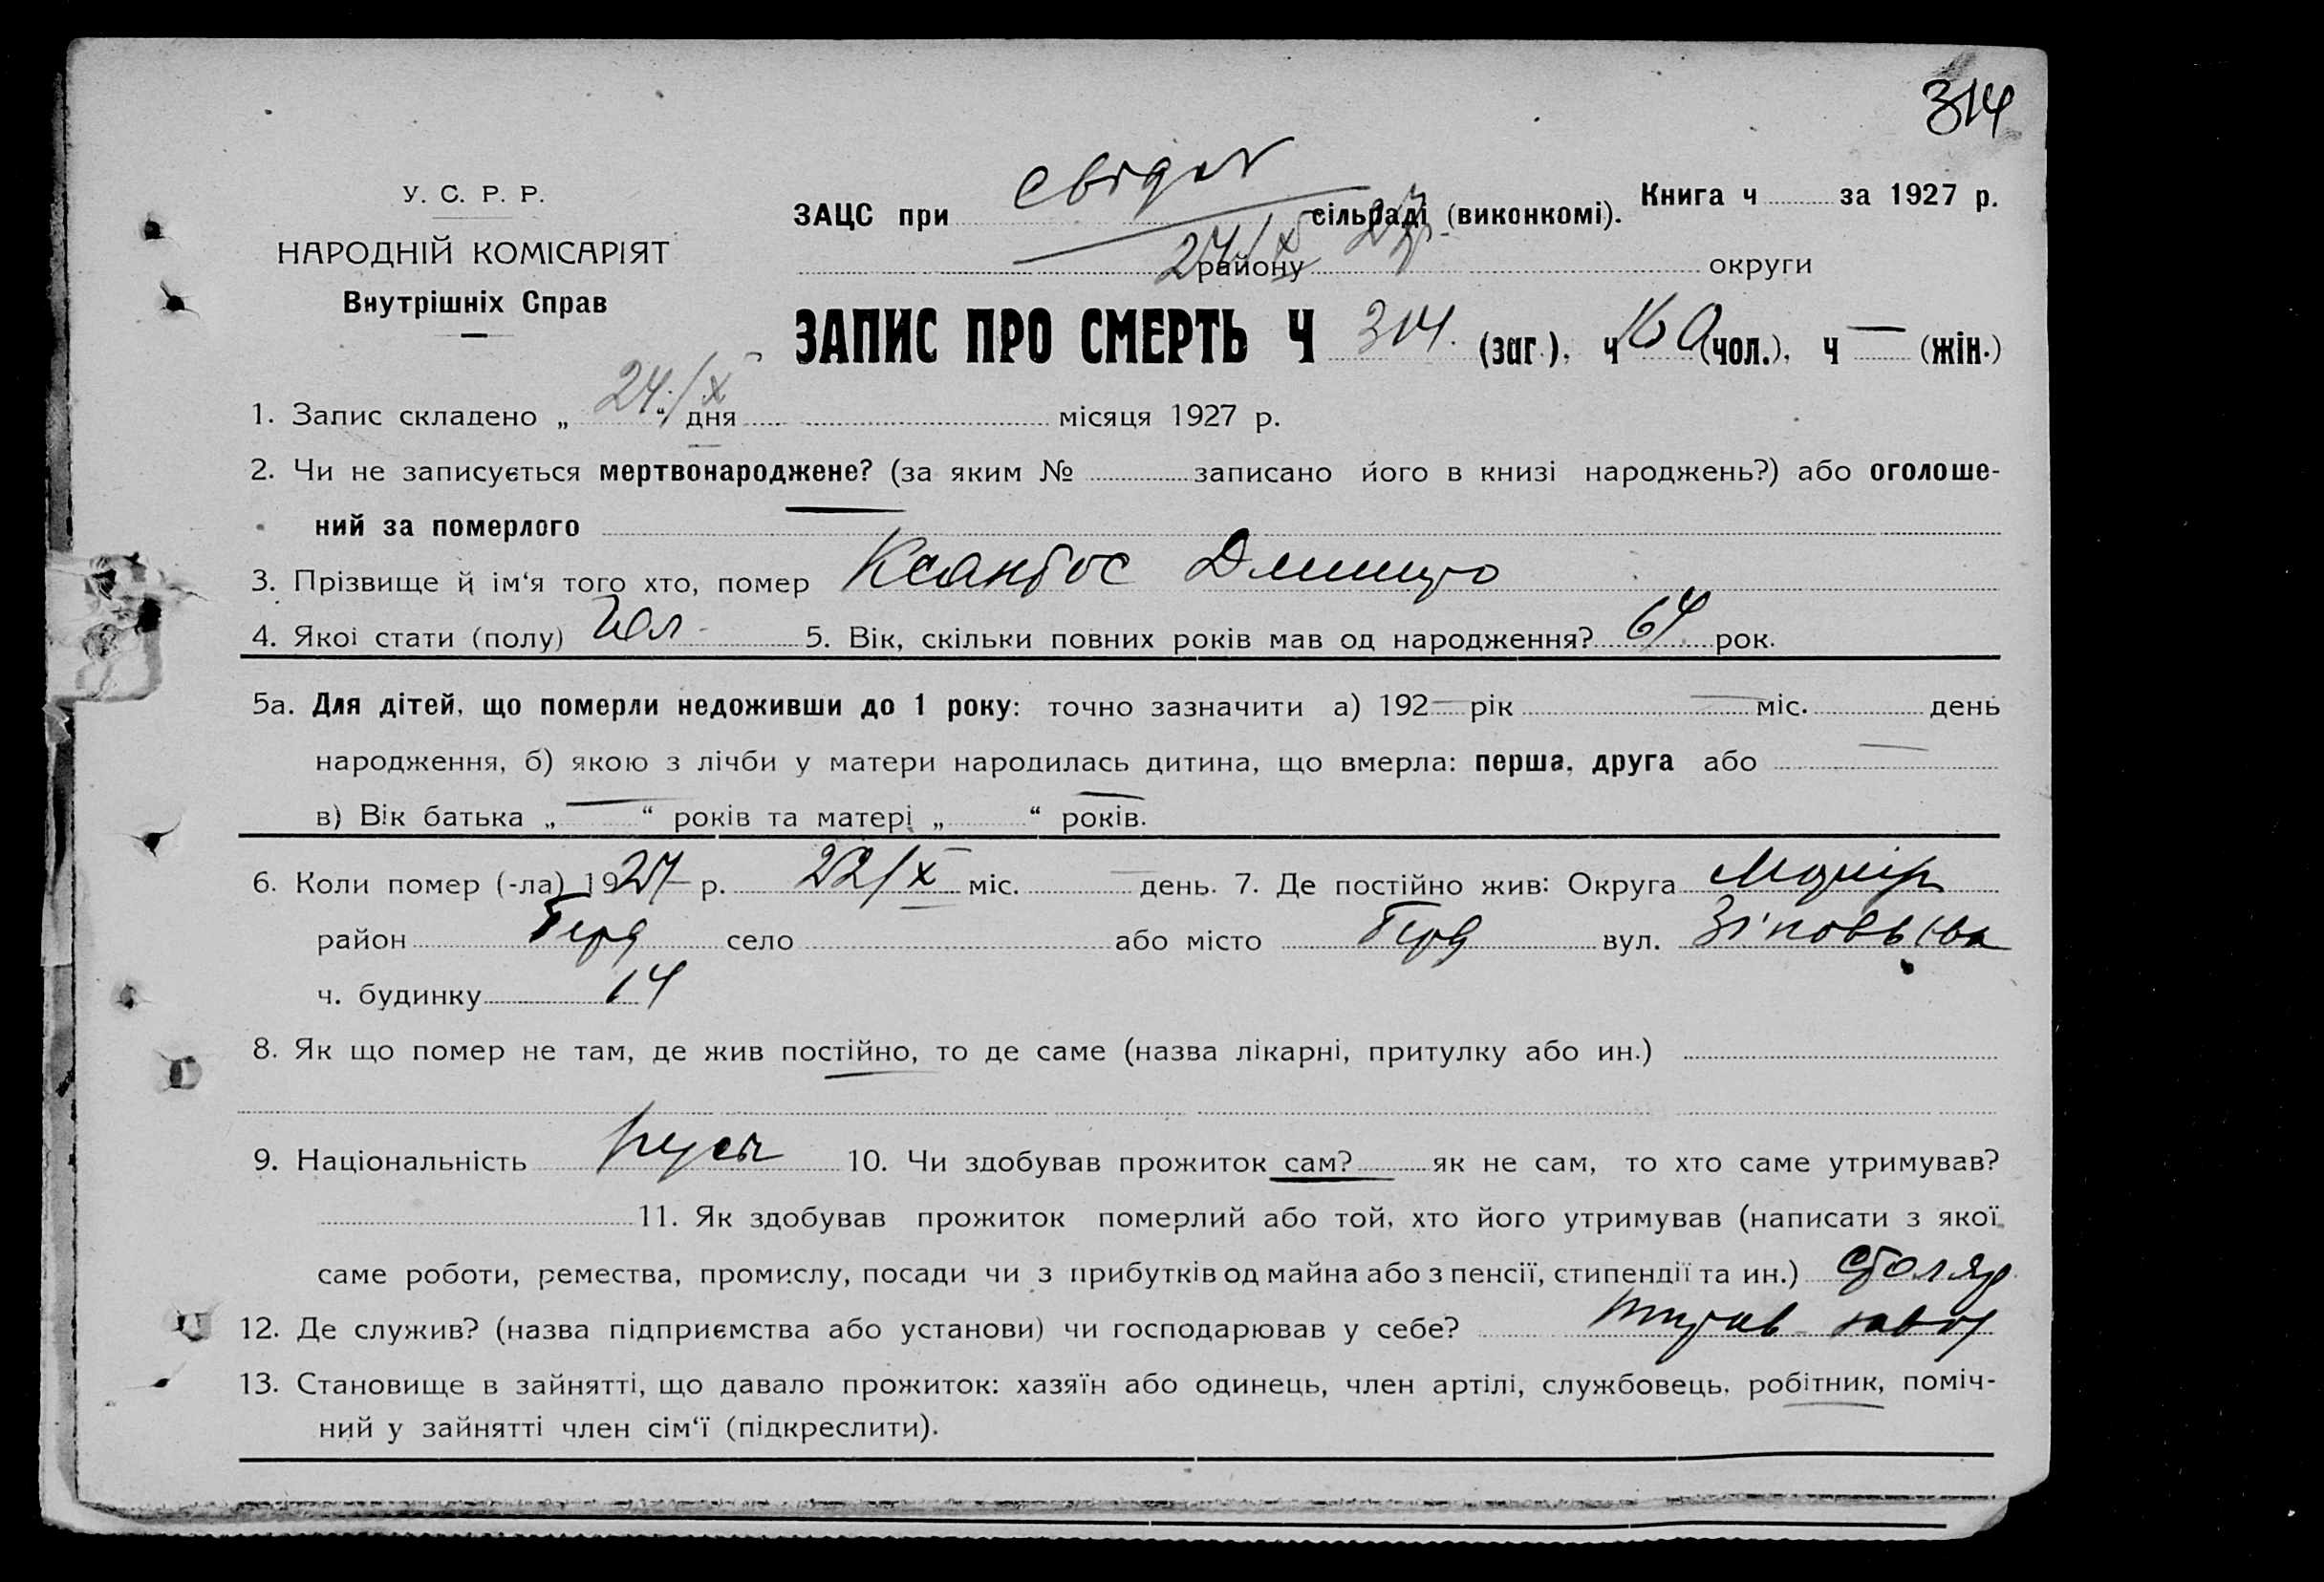 314
У. С. Р. Р.
НАРОДНІЙ КОМІСАРІЯТ
Внутрішніх Справ
Книга ч за 1927 р.
ЗАЦС при сільраді (виконкомі).
24/X 27 р.
району округи
ЗАПИС ПРО СМЕРТЬ Ч 314. (заг.), ч (чол.), ч — (жін.)
1. Запис складено „ 24/X “ дня місяця 1927 р.
2. Чи не записується мертвонароджене? (за яким № записано його в книзі народжень?) або оголоше-
ний за померлого —
3. Прізвище й ім‘я того хто, помер Ксантос Дмитро
4. Якої стати (полу) Чол 5. Вік, скільки повних років мав од народження? 64 рок.
5а. Для дітей, що померли недоживши до 1 року: точно зазначити а) 192— рік — міс. день
народження, б) якою з лічби у матери народилась дитина, що вмерла: перша, друга або —
в) Вік батька „ — “ років та матері „ “ років.
6. Коли помер (-ла) 1927 р. 22/X міс. — день. 7. Де постійно жив: Округа
район село або місто вул.
ч. будинку 14
8. Як що помер не там, де жив постійно, то де саме (назва лікарні, притулку або ин.)
9. Національність 10. Чи здобував прожиток сам? як не сам, то хто саме утримував?
11. Як здобував прожиток померлий або той, хто його утримував (написати з якої
саме роботи, ремества, промислу, посади чи з прибутків од майна або з пенсії, стипендії та ин.) столяр
12. Де служив? (назва підприємства або установи) чи господарював у себе?
13. Становище в зайнятті, що давало прожиток: хазяїн або одинець, член артілі, службовець, робітник, поміч-
ний у зайнятті член сім‘ї (підкреслити).